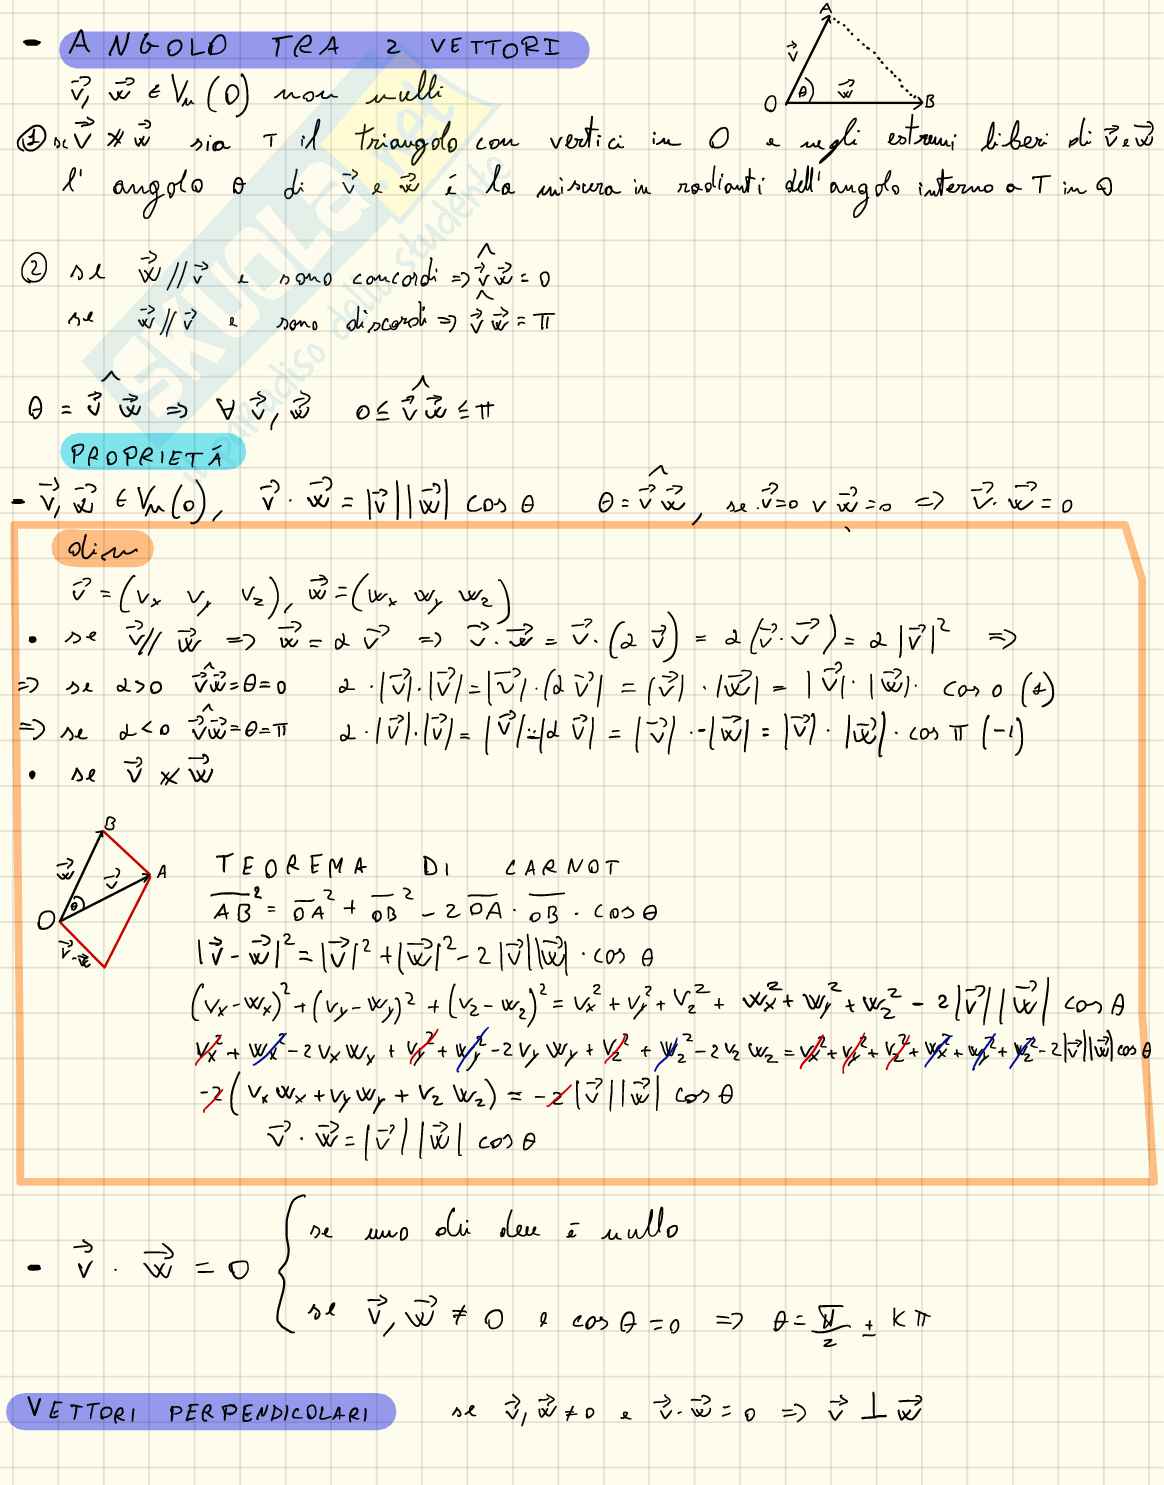 - ANGOLO TRA 2 VETTORI
v⃗, w⃗ ∈ Vn(0) non nulli
① se v⃗ ∦ w⃗ sia T il triangolo con vertici in O e negli estremi liberi di v⃗ e w⃗
l'angolo θ di v⃗ e w⃗ è la misura in radianti dell'angolo interno a T in O
A
v⃗
θ
w⃗
O
B
② se w⃗ // v⃗ e sono concordi => v⃗^w⃗ = 0
se w⃗ // v⃗ e sono discordi => v⃗^w⃗ = π
θ = v⃗^w⃗ => ∀ v⃗, w⃗ 0 ≤ v⃗^w⃗ ≤ π
PROPRIETÁ
- v⃗, w⃗ ∈ Vn(0), v⃗ · w⃗ = |v⃗||w⃗| cos θ θ = v⃗^w⃗, se v⃗=0 v w⃗=0 => v⃗ · w⃗ = 0
dim
v⃗ = (vx vy vz), w⃗ = (wx wy wz)
• se v⃗ // w⃗ => w⃗ = α v⃗ => v⃗ · w⃗ = v⃗ · (α v⃗) = α (v⃗ · v⃗) = α |v⃗|² =>
=> se α>0 v⃗^w⃗=θ=0 α · |v⃗| · |v⃗| = |v⃗| · (α v⃗| = |v⃗| · |w⃗| = |v⃗| · |w⃗| · cos 0 (1)
=> se α<0 v⃗^w⃗=θ=π α · |v⃗| · |v⃗| = |v⃗| · -|α v⃗| = |v⃗| · -|w⃗| = |v⃗| · |w⃗| · cos π (-1)
• se v⃗ ∦ w⃗
B
w⃗
v⃗
A
θ
O
v⃗-w⃗
TEOREMA DI CARNOT
AB² = OA² + OB² - 2 OA · OB · cos θ
|v⃗ - w⃗|² = |v⃗|² + |w⃗|² - 2 |v⃗||w⃗| · cos θ
(vx-wx)² + (vy-wy)² + (vz-wz)² = vx² + vy² + vz² + wx² + wy² + wz² - 2|v⃗||w⃗| cos θ
vx² + wx² - 2 vx wx + vy² + wy² - 2 vy wy + vz² + wz² - 2 vz wz = vx² + vy² + vz² + wx² + wy² + wz² - 2|v⃗||w⃗| cos θ
-2 (vx wx + vy wy + vz wz) = -2 |v⃗||w⃗| cos θ
v⃗ · w⃗ = |v⃗||w⃗| cos θ
- v⃗ · w⃗ = 0 { se uno dei due è nullo
se v⃗, w⃗ ≠ 0 e cos θ = 0 => θ = π/2 ± kπ
VETTORI PERPENDICOLARI se v⃗, w⃗ ≠ 0 e v⃗ · w⃗ = 0 => v⃗ ⊥ w⃗
SKUOLA.net
il paradiso dello studente